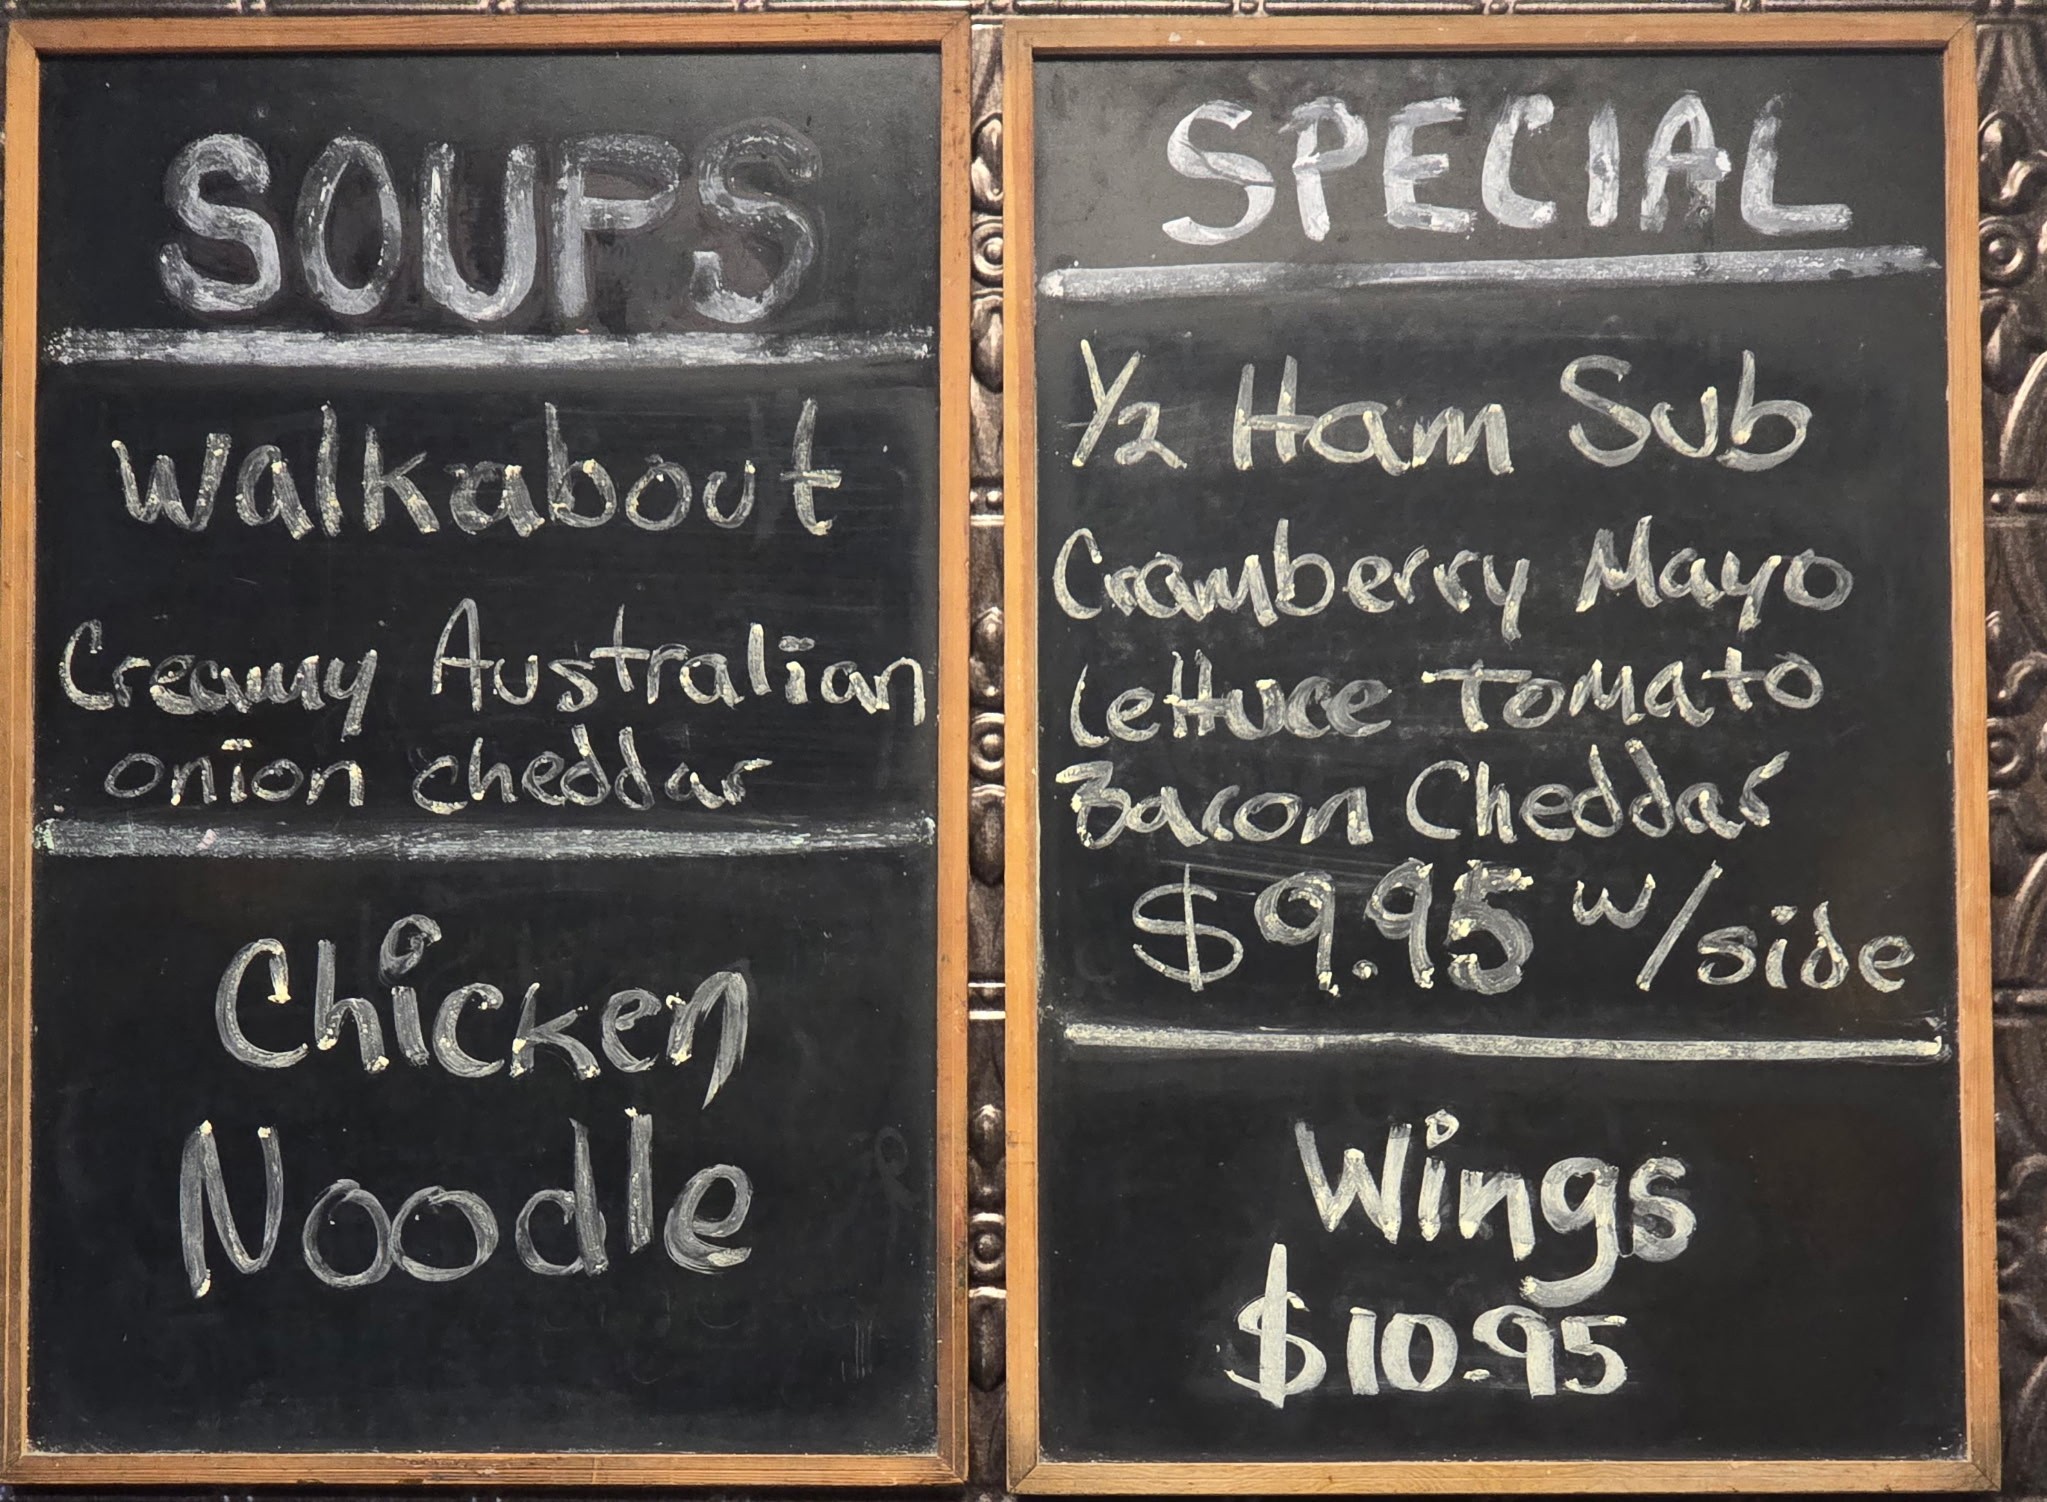 SOUPS
Walkabout
Creamy Australian
onion cheddar
Chicken
Noodle
SPECIAL
1/2 Ham Sub
Cramberry Mayo
Lettuce Tomato
Bacon Cheddar
$9.95 w/side
Wings
$10.95